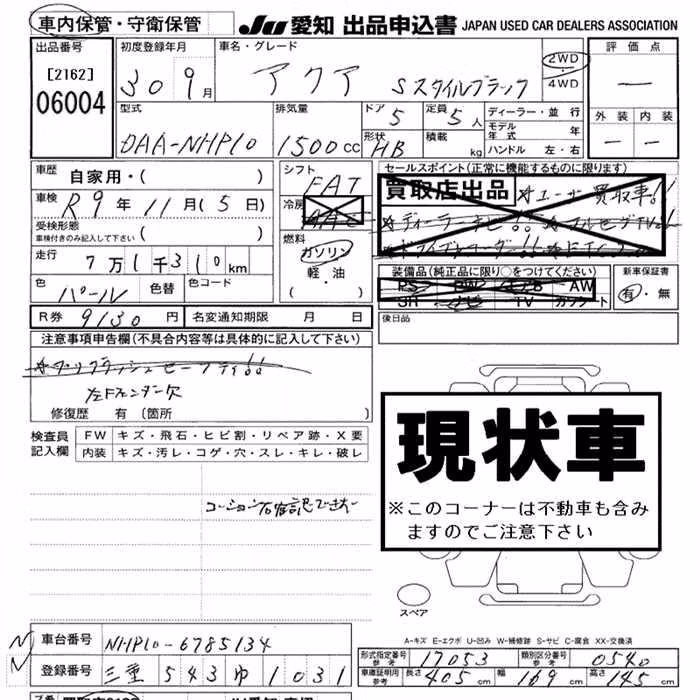 車内保管・守衛保管 JU 愛知 出品申込書 JAPAN USED CAR DEALERS ASSOCIATION
出品番号 初度登録年月 車名・グレード 評価点
[2162] 30 9月 アクア Sスタイルブラック 2WD・4WD —
06004 型式 排気量 ドア 5 定員 5人 ディーラー・並行 外装 内装
DAA-NHP10 1500cc 形状 HB 積載 kg モデル年式 年 — —
ハンドル 左・右
車歴 自家用・( ) シフト FAT セールスポイント(正常に機能するものに限ります)
車検 R9年11月(5日) 冷房 AAC 買取店出品 ※ユーザー買取車!!
受検形態 車検付きのみ記入して下さい ( ) 燃料 ガソリン 軽・油 (・)
走行 7万1千310km
装備品(純正品に限り○をつけてください) 新車保証書
色 パール 色替 色コード PS PW AW 有・無
SR ナビ TV カワシート
R券 9130円 名変通知期限 月 日 後日品
注意事項申告欄(不具合内容等は具体的に記入して下さい)
左Fフェンダー欠
修復歴 有 (箇所 )
検査員記入欄 FW キズ・飛石・ヒビ割・リペア跡・X要
内装 キズ・汚レ・コゲ・穴・スレ・キレ・破レ
現状車
※このコーナーは不動車も含みますのでご注意下さい
スペア
A-キズ E-エクボ U-凹み W-補修跡 S-サビ C-腐食 XX-交換済
N 車台番号 NHP10-6785134
N 登録番号 三重 543 ゆ 1031
形式指定番号 参考 17053 類別区分番号 参考 0540
車庫証明用 参考 長さ 405cm 幅 169cm 高さ 145cm